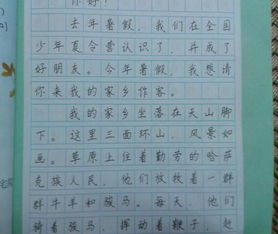 你好！
去年暑假，我们在全国
少年夏令营认识了，并成了
好朋友。今年暑假，我想请
你来我的家乡作客。
我的家乡坐落在天山脚
下。这里三面环山，风景如
画。草原上住着勤劳的哈萨
克族人民，他们放牧着一群
群牛羊和骏马。每天，他们
骑着骏马，挥动着鞭子，赶